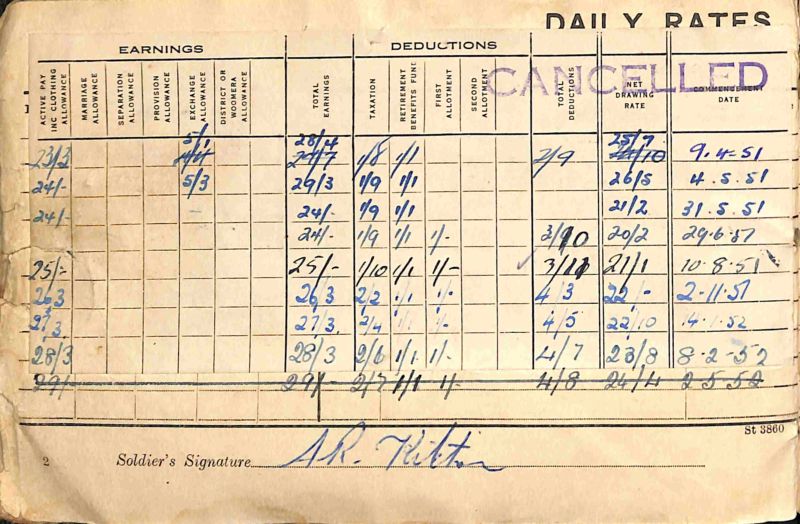 DAILY RATES
EARNINGS DEDUCTIONS
CANCELLED
ACTIVE PAY INC CLOTHING ALLOWANCE MARRIAGE ALLOWANCE SEPARATION ALLOWANCE PROVISION ALLOWANCE EXCHANGE ALLOWANCE DISTRICT OR WOOMERA ALLOWANCE TOTAL EARNINGS TAXATION RETIREMENT BENEFITS FUND FIRST ALLOTMENT SECOND ALLOTMENT TOTAL DEDUCTIONS NET DRAWING RATE COMMENCEMENT DATE
5/1 28/4 25/7
23/3 1/8 1/1 2/9 9.4-51
24/- 5/3 29/3 1/9 1/1 26/5 4.5.51
24/- - 24/- 1/9 1/1 21/2 31.5.51
24/- 1/9 1/1 1/- 3/10 20/2 29.6.51
25/- 25/- 1/10 1/1 1/- 3/11 21/1 10.8.51
263 26/3 2/2 1/1 1/- 4/3 22/- 2.11.51
27/3 27/3 2/4 1/1 1/- 4/5 22/10 14.1.52
28/3 28/3 2/6 1/1 1/- 4/7 23/8 8-2-52
29/- 29/- 2/7 1/1 1/- 4/8 24/4 2-5-52
St 3860
2 Soldier's Signature